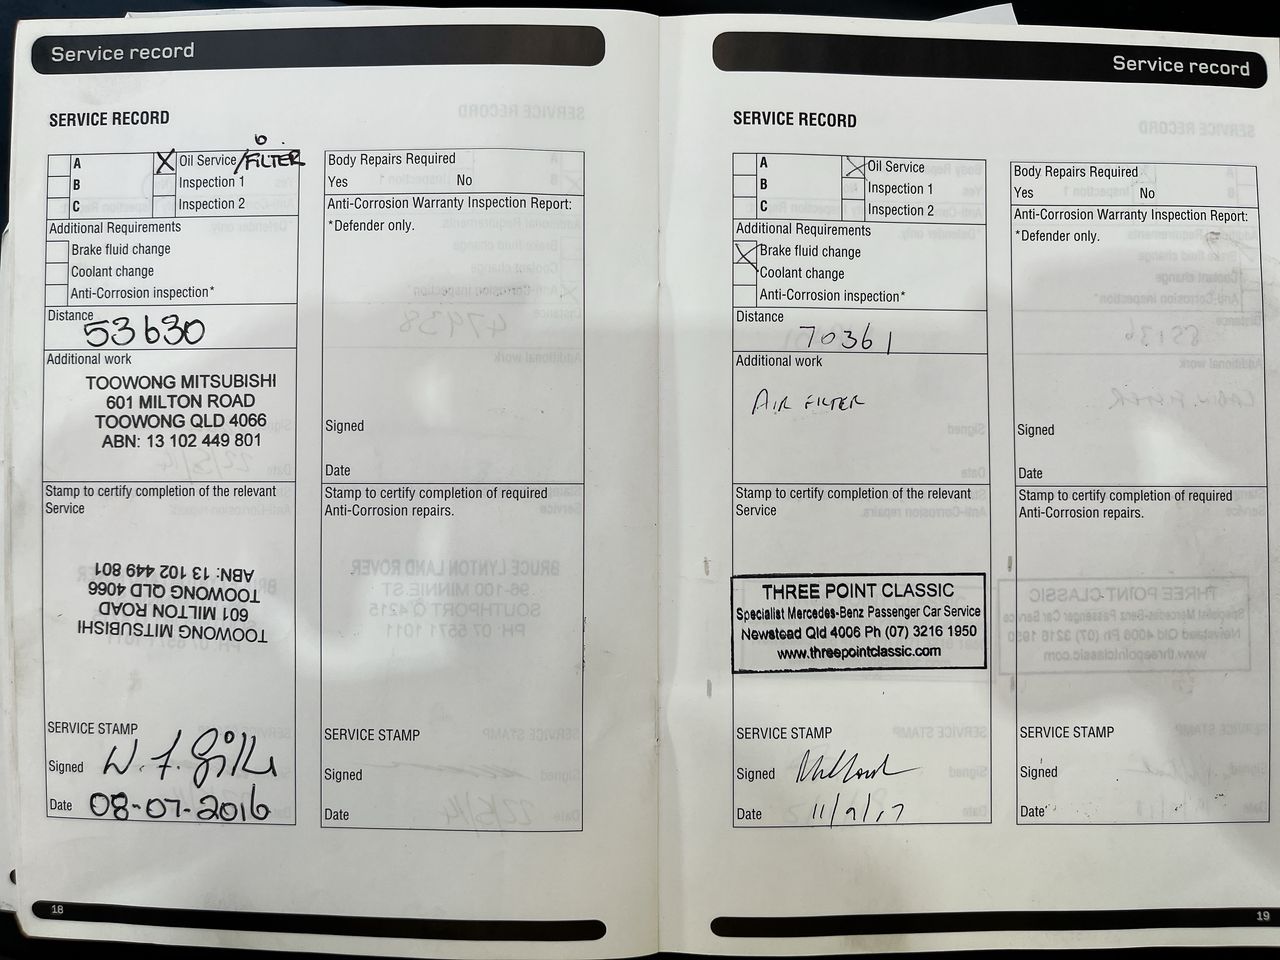 Service record
SERVICE RECORD
A
B
C
X Oil Service/FILTER
Inspection 1
Inspection 2
Additional Requirements
Brake fluid change
Coolant change
Anti-Corrosion inspection*
Distance
53630
Additional work
TOOWONG MITSUBISHI
601 MILTON ROAD
TOOWONG QLD 4066
ABN: 13 102 449 801
Stamp to certify completion of the relevant
Service
TOOWONG MITSUBISHI
601 MILTON ROAD
TOOWONG QLD 4066
ABN: 13 102 449 801
SERVICE STAMP
Signed
Date 08-07-2016
Body Repairs Required
Yes No
Anti-Corrosion Warranty Inspection Report:
*Defender only.
Signed
Date
Stamp to certify completion of required
Anti-Corrosion repairs.
SERVICE STAMP
Signed
Date
18
Service record
SERVICE RECORD
A
B
C
X Oil Service
Inspection 1
Inspection 2
Additional Requirements
X Brake fluid change
Coolant change
Anti-Corrosion inspection*
Distance
70361
Additional work
AIR FILTER
Stamp to certify completion of the relevant
Service
THREE POINT CLASSIC
Specialist Mercedes-Benz Passenger Car Service
Newstead Qld 4006 Ph (07) 3216 1950
www.threepointclassic.com
SERVICE STAMP
Signed
Date 11/9/17
Body Repairs Required
Yes No
Anti-Corrosion Warranty Inspection Report:
*Defender only.
Signed
Date
Stamp to certify completion of required
Anti-Corrosion repairs.
SERVICE STAMP
Signed
Date
19